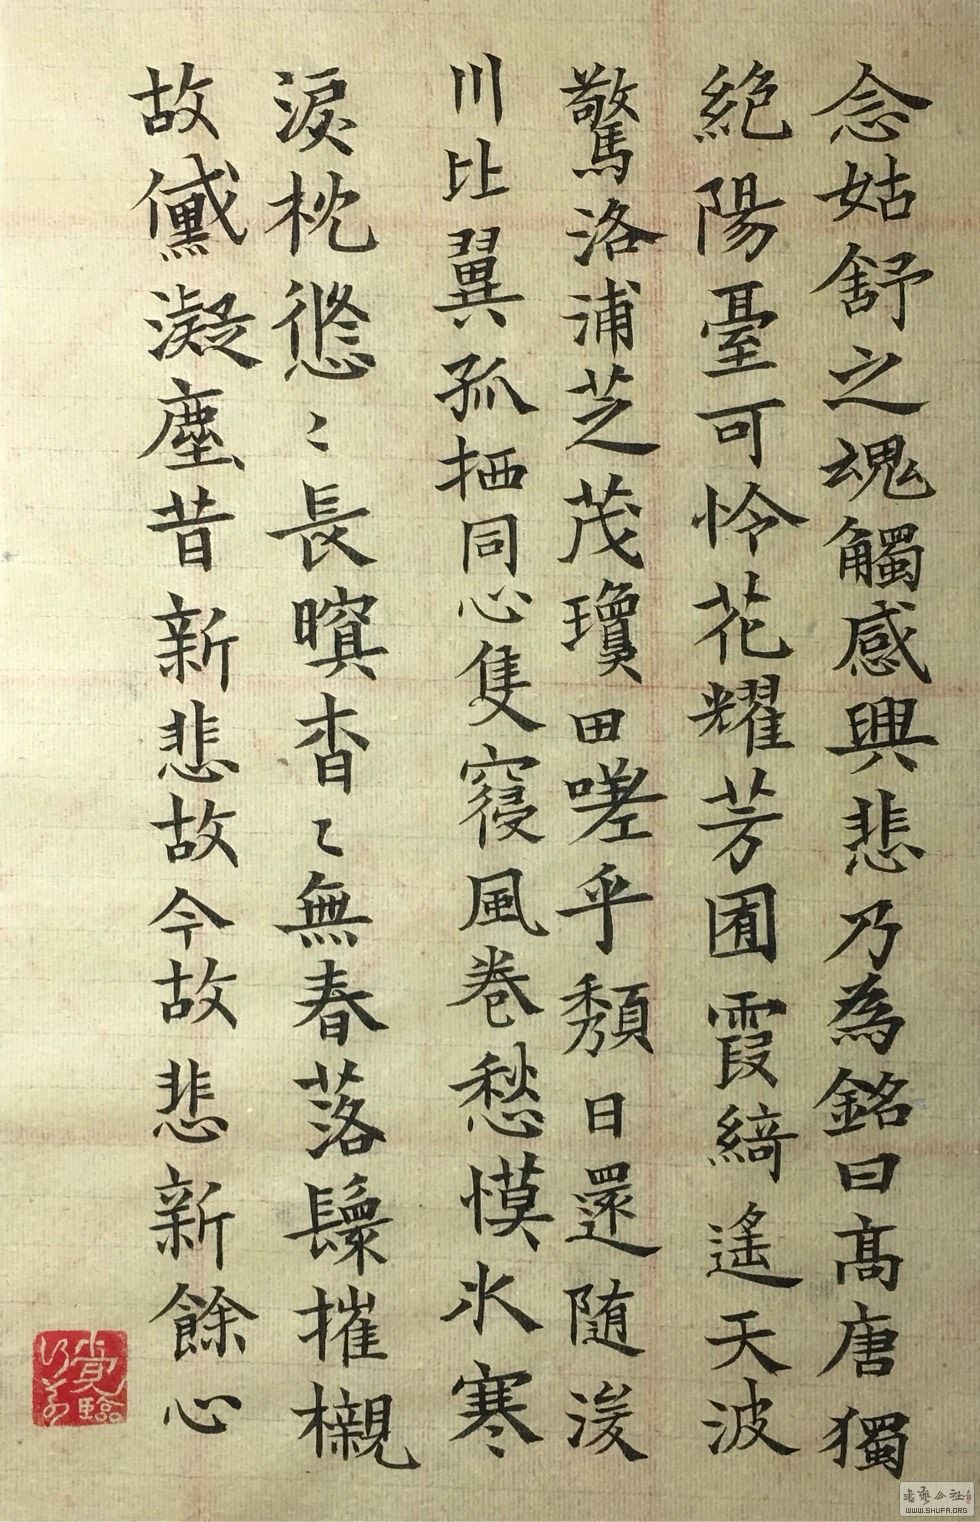 念姑舒之魂觸感興悲乃為銘曰髙唐獨
絕陽臺可怜花耀芳囿霞綺遙天波
驚洛浦芝茂瓊田嗟乎頹日還随浚
川比翼孤栖同心隻寢風卷愁慔氷寒
淚枕悠〻長暝杳〻無春落鬟摧櫬
故黛凝塵昔新悲故今故悲新餘心
書藝公社
WWW.SHUFA.ORG